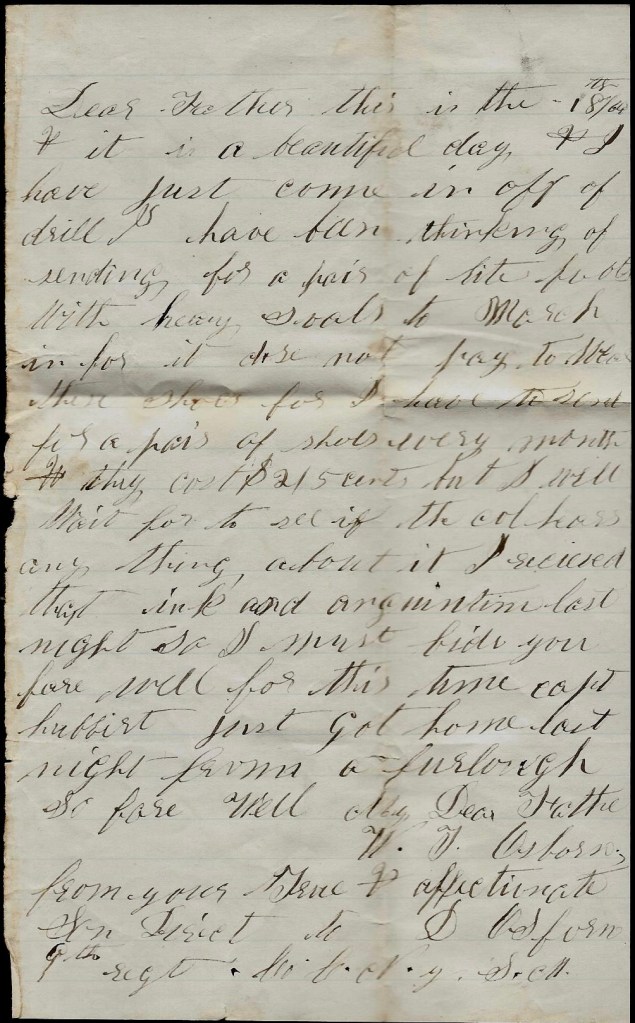 Dear Father this is the 18th/64
& it is a beautiful day & I
have just come in off of
drill I have been thinking of
sending for a pair of lite boots
with heavy soals to March
in for it dose not pay to Wear
these shoes for I have to send
for a pair of shoes every month
& they cost $ 2,15 cents but I will
Wait for to see if the col hears
any thing about it I recieved
that ink and anguintim last
night so I must bidi you
fare well for this time capt
hubbirt just got home last
night from a furlough
So fare Well My Dear Father
W. T. Osborn
from your True & affectunate
Son Direct to D Osforn
9th regt N. Y. S. M.